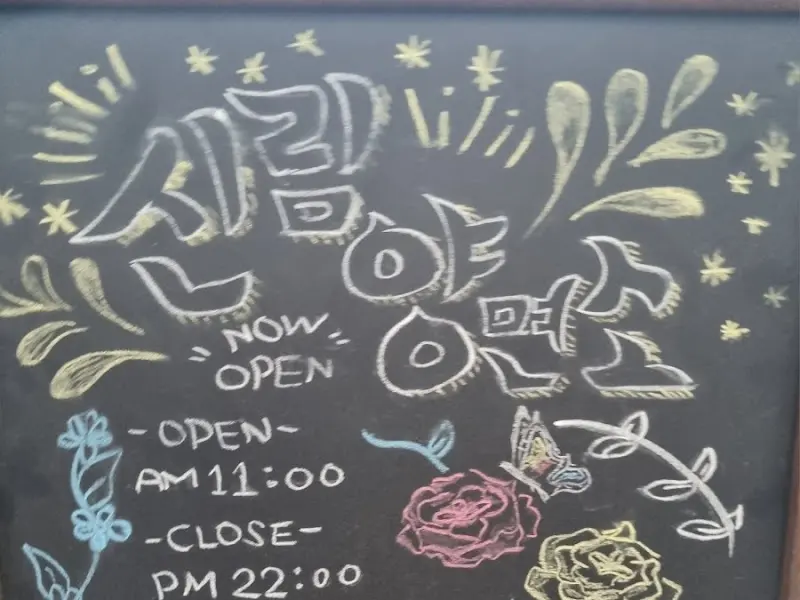 신림
양면조
NOW
OPEN
-OPEN-
AM 11:00
-CLOSE-
PM 22:00